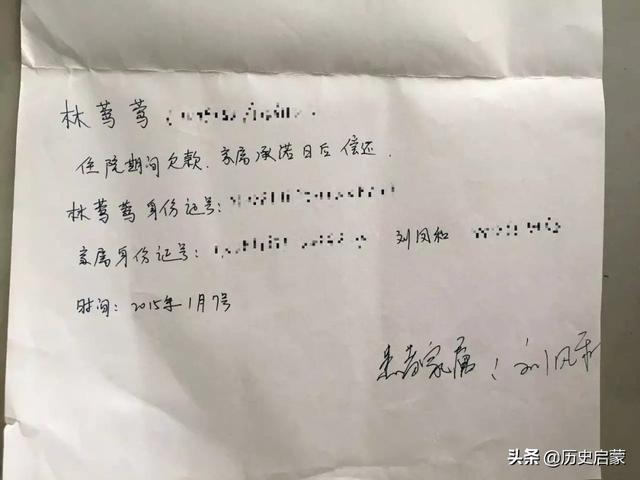 林莺莺
住院期间欠款.家属承诺日后偿还.
林莺莺身份证号:
家属身份证号: 刘凤和
时间: 2015年1月7号
患者家属:刘凤和
头条 @历史启蒙